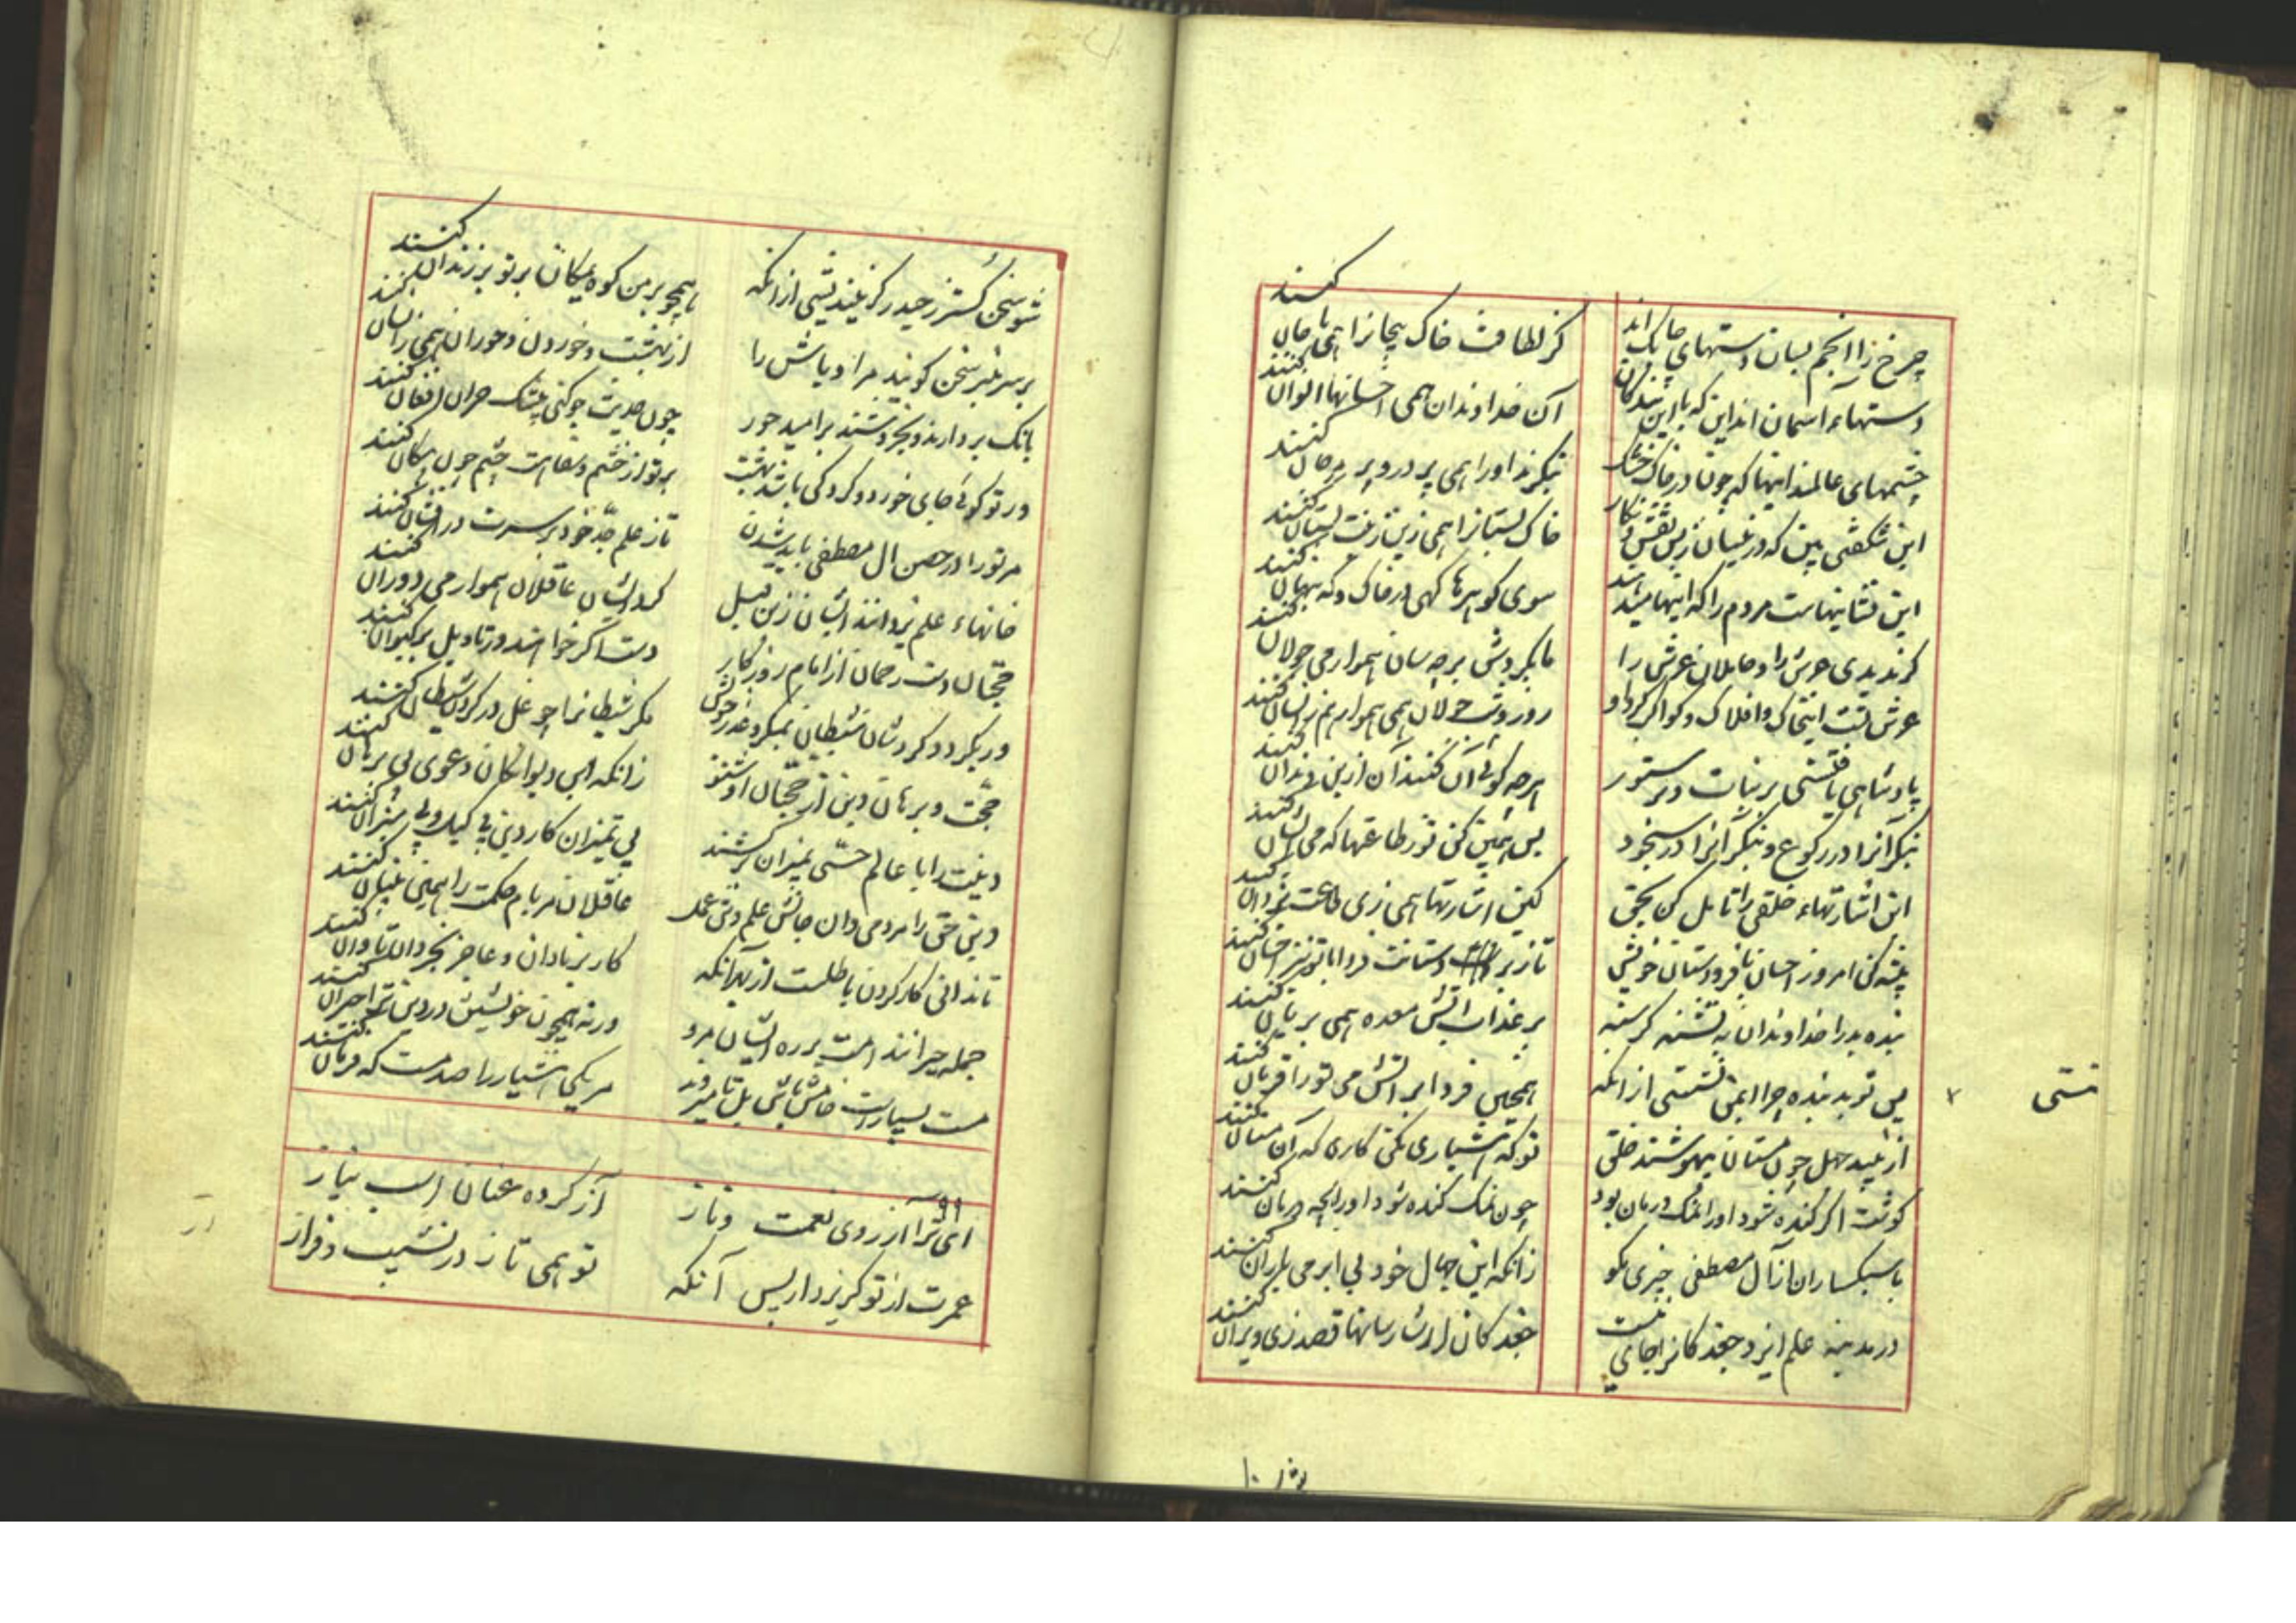 چرخ را انجم بسان دستهای چابک اند
کز لطافت خاک بیجانرا همی با جان کنند
دستهاء آسمان اند این که با این بندگان
آن خداوندان همی احسانها الوان کنند
چشمهای عالمند اینها که چون در خاک خشک
بنگرند اورا همی پر در و پر مرجان کنند
این شگفتی بین که در نیسان زبس نقش و نگار
خاک بستانرا همی زین زینت بستان کنند
این نشانیهاست مردم را که اینها میدهند
سوی گوهرها گهی در خاک و گه پنهان کنند
گر ندیدی عرش را و حاملان عرش را
تا بگردش بر چه سان هموار می جولان کنند
عرش تست این خاک و افلاک و کواکب گرد او
روز و شب جولان همی هموار هم زینسان کنند
پادشاهی یافتستی بر نبات و بر ستور
هر چه گوئی آن کنند آن از بن دندان کنند
بنگر آنرا در رکوع و بنگر آنرا در سجود
پس همین کن تو ز طاعتها که می ایشان کنند
این اشارتهاء خلقی را تأمل کن بحق
کین اشارتها همی زی طاعت یزدان کنند
پیشه کن امروز احسان با فرودستان خویش
تا زبردستانت فردا با تو نیز احسان کنند
بنده بد را خداوندان به تشنه گرسنه
بر عذاب آتش معده همی بریان کنند
پس تو بد بنده چرا ایمن نشستی از آنکه
همچنین فردا بر آتش می تو را قربان کنند
نستی
از نبید جهل چون مستان بیهوشند خلق
تو که هشیاری مکن کاری که آن مستان کنند
گوشت ار گنده شود اورا نمک درمان بود
چون نمک گنده شود اورا بچه درمان کنند
با سبکساران از آل مصطفی چیزی مگو
زانکه این جهال خود بی ابر می باران کنند
در مدینه علم ایزد جغدکانرا جای نیست
جغدکان از شارسانها قصد زی ویران کنند
شو سخن گستر ز حیدر گر نیندیشی از آنکه
همچو بر من کوه یمگان بر تو بر زندان کنند
بر سر منبر سخن گویند مر اوباش را
از بهشت و خوردن و حوران همی زینسان کنند
بانگ بردارند و بخروشند بر امید خور
چون حدیث جو کنی بیشک خران افغان کنند
ور تو گوئی جای خورد و کرد کی باشد بهشت
بر تو از خشم و سفاهت چشم چون پیکان کنند
مر تو را در حصن ال مصطفی باید شدن
تا ز علم جد خود بر سرت در افشان کنند
خانهاء علم یزدانند ایشان زین قبل
گرد ایشان عاقلان هموار می دوران کنند
حجتان دست رحمان از امام روزگار
دست اگر خواهند در تاویل بر کیوان کنند
ور بگردد گردشان شیطان بمکر و غدر خویش
مکر شیطانرا چو غل در گردن شیطان کنند
حجت و برهان دین از حجتان او شنو
زانکه این دیوانگان دعوی بی برهان کنند
دینت را با عالم حسی بمیزان برکشند
بی تمیزان کار دین بی کیل و بی میزان کنند
دین حق را مردمی دان جانش علم و تن عمل
عاقلان مر بام حکمت را همین بنیان کنند
تا ندانی کار کردن باطلست از بهر آنکه
کار بر نادان و عاجز بخردان تاوان کنند
جمله حیرانند امت بر ره ایشان مرو
ورنه همچون خویشتن در دین ترا حیران کنند
مست بسیارست خامش باش بل تا میروند
مر یکی هشیار را صد مست که فرمان کنند
۹۹
ای ترا آرزوی نعمت و ناز
آز کرده عنان اسب نیاز
عمرت از تو گریزد از پس آنکه
تو همی تاز در نشیب و فراز